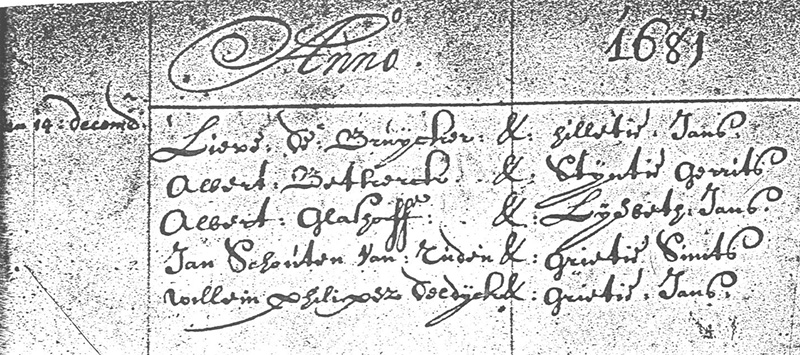 Anno 1681
14 decemb:
Lieve: de: Bruÿcker: &: hilletie: Jans:
Albert: Betkerck: &: Stÿntie Gerrits
Albert: Glashoff: &: Lÿsbeth: Jans:
Jan Schouten van: &: Grietie Smits
Willem philipsz &: Grietie: Jans: